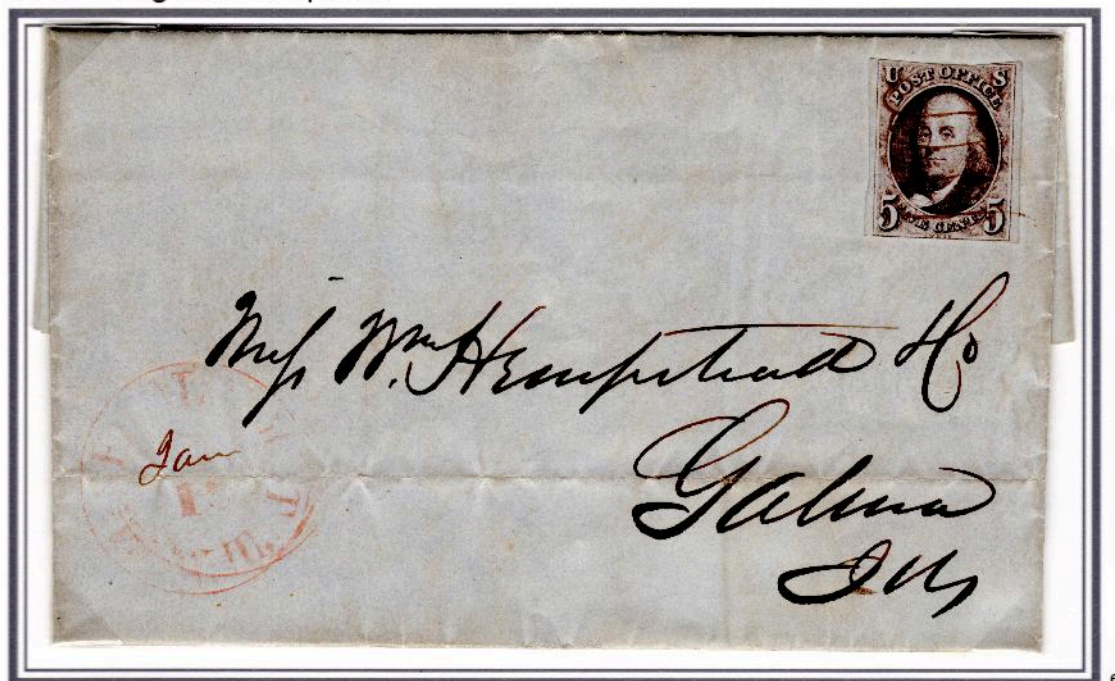 U S
POST OFFICE
5 FIVE CENTS 5
Mess Wm. Hempstead &Co
Jan
Galena
Ills